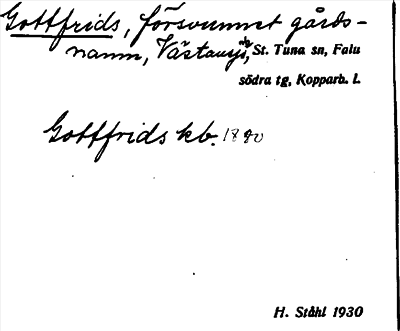 Gottfrids, försvunnet gårds-
namn, Västansjö, St. Tuna sn, Falu
södra tg, Kopparb. l.
Gottfrids kb. 1890
H. Ståhl 1930